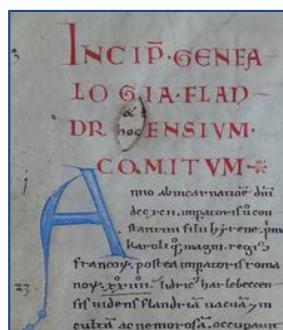 INCIP̄·GENEA
LOGIA·FLAN
DR ENSIVM·
&
hoc
COMITVM
Anno abincarnatiōe dn̄i
impatoris ū con
stantini filii hyrene. p̄mo
karoli q̨ magni. regis
francoꝝ. postea impatoris roma
noꝝ. xxiiii. lidric harlebeccen
sis uidens flandriā uacuā ⁊ in
cultā ac nemorosā. occupauit
3
j
23